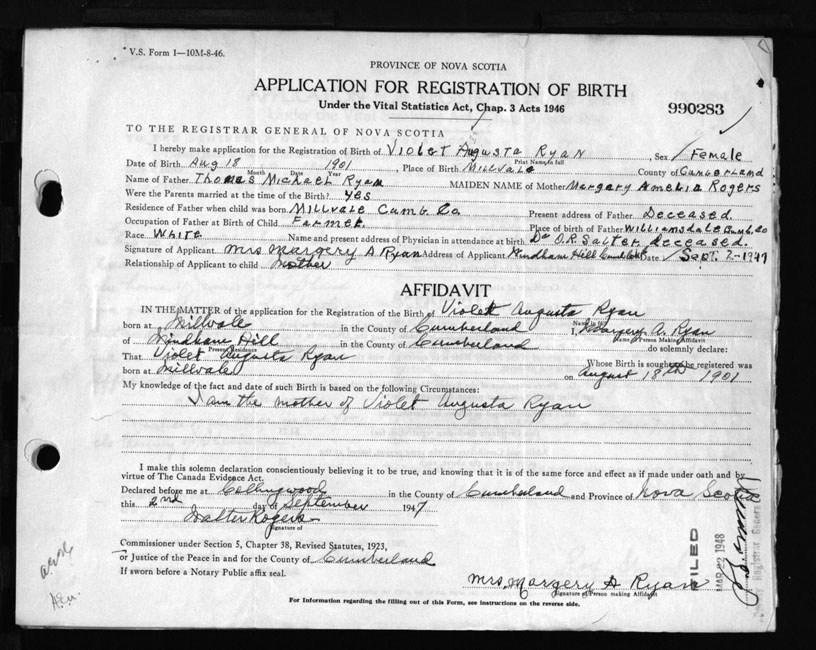 V.S. Form 1—10M-8-46.
PROVINCE OF NOVA SCOTIA
APPLICATION FOR REGISTRATION OF BIRTH
Under the Vital Statistics Act, Chap. 3 Acts 1946
990283
TO THE REGISTRAR GENERAL OF NOVA SCOTIA
I hereby make application for the Registration of Birth of Violet Augusta Ryan, Sex Female
Print Name in full
Date of Birth Aug 18 1901, Place of Birth Millvale County of Cumberland
Month Date Year
Name of Father Thomas Michael Ryan MAIDEN NAME of Mother Margary Amelia Rogers
Were the Parents married at the time of the Birth? Yes
Residence of Father when child was born Millvale Cumb. Co Present address of Father Deceased.
Occupation of Father at Birth of Child Farmer. Place of birth of Father Williamsdale Cumb. Co
Race White Name and present address of Physician in attendance at birth Dr O.R. Salter deceased.
Signature of Applicant Mrs Margery A Ryan Address of Applicant Windham Hill Date Sept. 2-1947
Relationship of Applicant to child Mother
AFFIDAVIT
IN THE MATTER of the application for the Registration of the Birth of Violet Augusta Ryan
Name in full
born at Millvale in the County of Cumberland I, Margery A. Ryan
Name of Person Making Affidavit
of Windham Hill in the County of Cumberland do solemnly declare:
Present Residence
That Violet Augusta Ryan Whose Birth is sought to be registered was
born at Millvale on August 18th 1901
My knowledge of the fact and date of such Birth is based on the following Circumstances:
I am the mother of Violet Augusta Ryan
I make this solemn declaration conscientiously believing it to be true, and knowing that it is of the same force and effect as if made under oath and by
virtue of The Canada Evidence Act.
Declared before me at Collingwood in the County of Cumberland and Province of Nova Scotia
this 2nd day of September 1947
Walter Rogers
Signature of
Commissioner under Section 5, Chapter 38, Revised Statutes, 1923,
or Justice of the Peace in and for the County of Cumberland
If sworn before a Notary Public affix seal.
Mrs. Margery A Ryan
Signature of Person making Affidavit
For Information regarding the filling out of this Form, see instructions on the reverse side.
FILED
MAR 22 1948
Registrar General